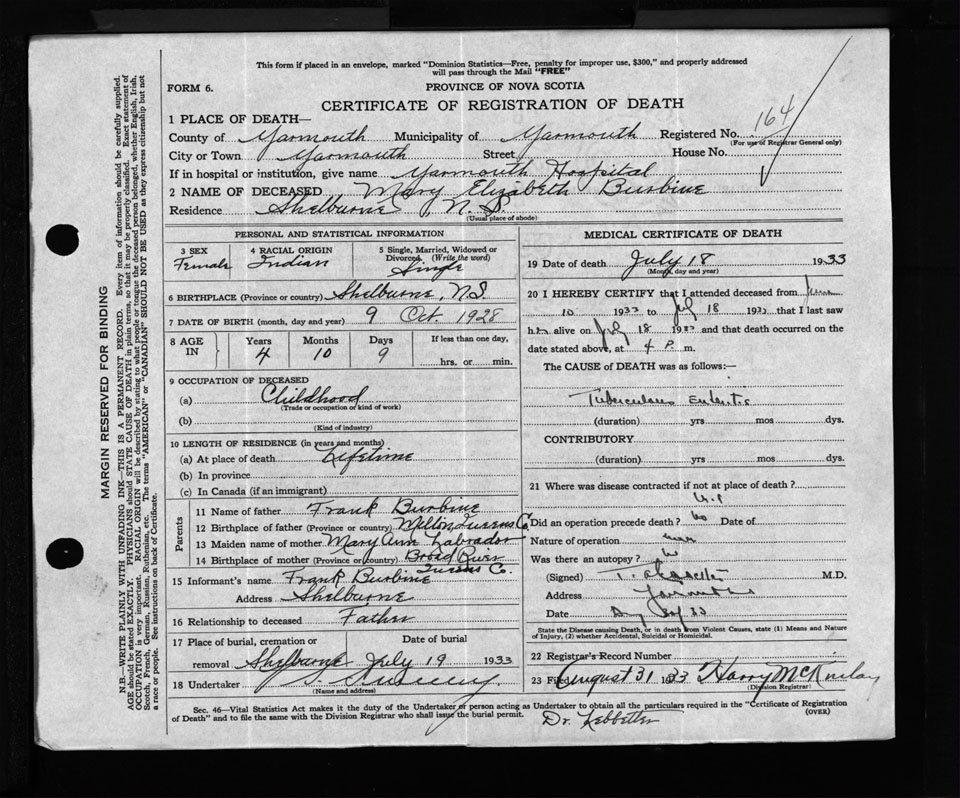 This form if placed in an envelope, marked "Dominion Statistics—Free, penalty for improper use, $300," and properly addressed
will pass through the Mail "FREE"
FORM 6.
PROVINCE OF NOVA SCOTIA
CERTIFICATE OF REGISTRATION OF DEATH
1 PLACE OF DEATH—
County of Yarmouth Municipality of Yarmouth Registered No. 164
(For use of Registrar General only)
City or Town Yarmouth Street House No.
If in hospital or institution, give name Yarmouth Hospital
2 NAME OF DECEASED Mary Elizabeth Burbine
Residence Shelburne N.S.
(Usual place of abode)
PERSONAL AND STATISTICAL INFORMATION
3 SEX 4 RACIAL ORIGIN 5 Single, Married, Widowed or
Divorced (Write the word)
Female Indian Single
6 BIRTHPLACE (Province or country) Shelburne, N.S.
7 DATE OF BIRTH (month, day and year) 9 Oct. 1928
8 AGE IN Years Months Days If less than one day,
4 10 9 hrs. or min.
9 OCCUPATION OF DECEASED
(a) Childhood
(Trade or occupation or kind of work)
(b)
(Kind of industry)
10 LENGTH OF RESIDENCE (in years and months)
(a) At place of death Lifetime
(b) In province
(c) In Canada (if an immigrant)
Parents
11 Name of father Frank Burbine
12 Birthplace of father (Province or country) Milton, Queens Co.
13 Maiden name of mother Mary Ann Labrador
14 Birthplace of mother (Province or country) Broad River
Queens Co.
15 Informant's name Frank Burbine
Address Shelburne
16 Relationship to deceased Father
17 Place of burial, cremation or Date of burial
removal Shelburne July 19 1933
18 Undertaker
(Name and address)
MEDICAL CERTIFICATE OF DEATH
19 Date of death July 18 1933
(Month, day and year)
20 I HEREBY CERTIFY that I attended deceased from
10 1933 to July 18 1933 that I last saw
her alive on July 18 1933 and that death occurred on
date stated above, at 4 P. m.
The CAUSE of DEATH was as follows:—
Tuberculous Enteritis
(duration) yrs mos dys.
CONTRIBUTORY
(duration) yrs mos dys.
21 Where was disease contracted if not at place of death?
Did an operation precede death? No Date of
Nature of operation
Was there an autopsy? No
(Signed) M.D.
Address Yarmouth
Date
State the Disease causing Death, or in death from Violent Causes, state (1) Means and Nature
of Injury, (2) whether Accidental, Suicidal or Homicidal.
22 Registrar's Record Number
23 Filed August 31 1933 Harry McKinlay
(Division Registrar)
Sec. 46—Vital Statistics Act makes it the duty of the Undertaker or person acting as Undertaker to obtain all the particulars required in the "Certificate of Registration
of Death" and to file the same with the Division Registrar who shall issue the burial permit.
(OVER)
Dr. Lebbetter
MARGIN RESERVED FOR BINDING
N.B.—WRITE PLAINLY WITH UNFADING INK—THIS IS A PERMANENT RECORD. Every item of information should be carefully supplied.
AGE should be stated EXACTLY. PHYSICIANS should STATE CAUSE OF DEATH in plain terms, so that it may be properly classified. Exact statement of
OCCUPATION is very important. RACIAL ORIGIN will be described by stating to what people or tongue the deceased person belonged, whether English, Irish,
Scotch, French, German, Russian, Ruthenian, etc. The terms "AMERICAN" or "CANADIAN" SHOULD NOT BE USED as they express citizenship but not
a race or people. See instructions on back of Certificate.